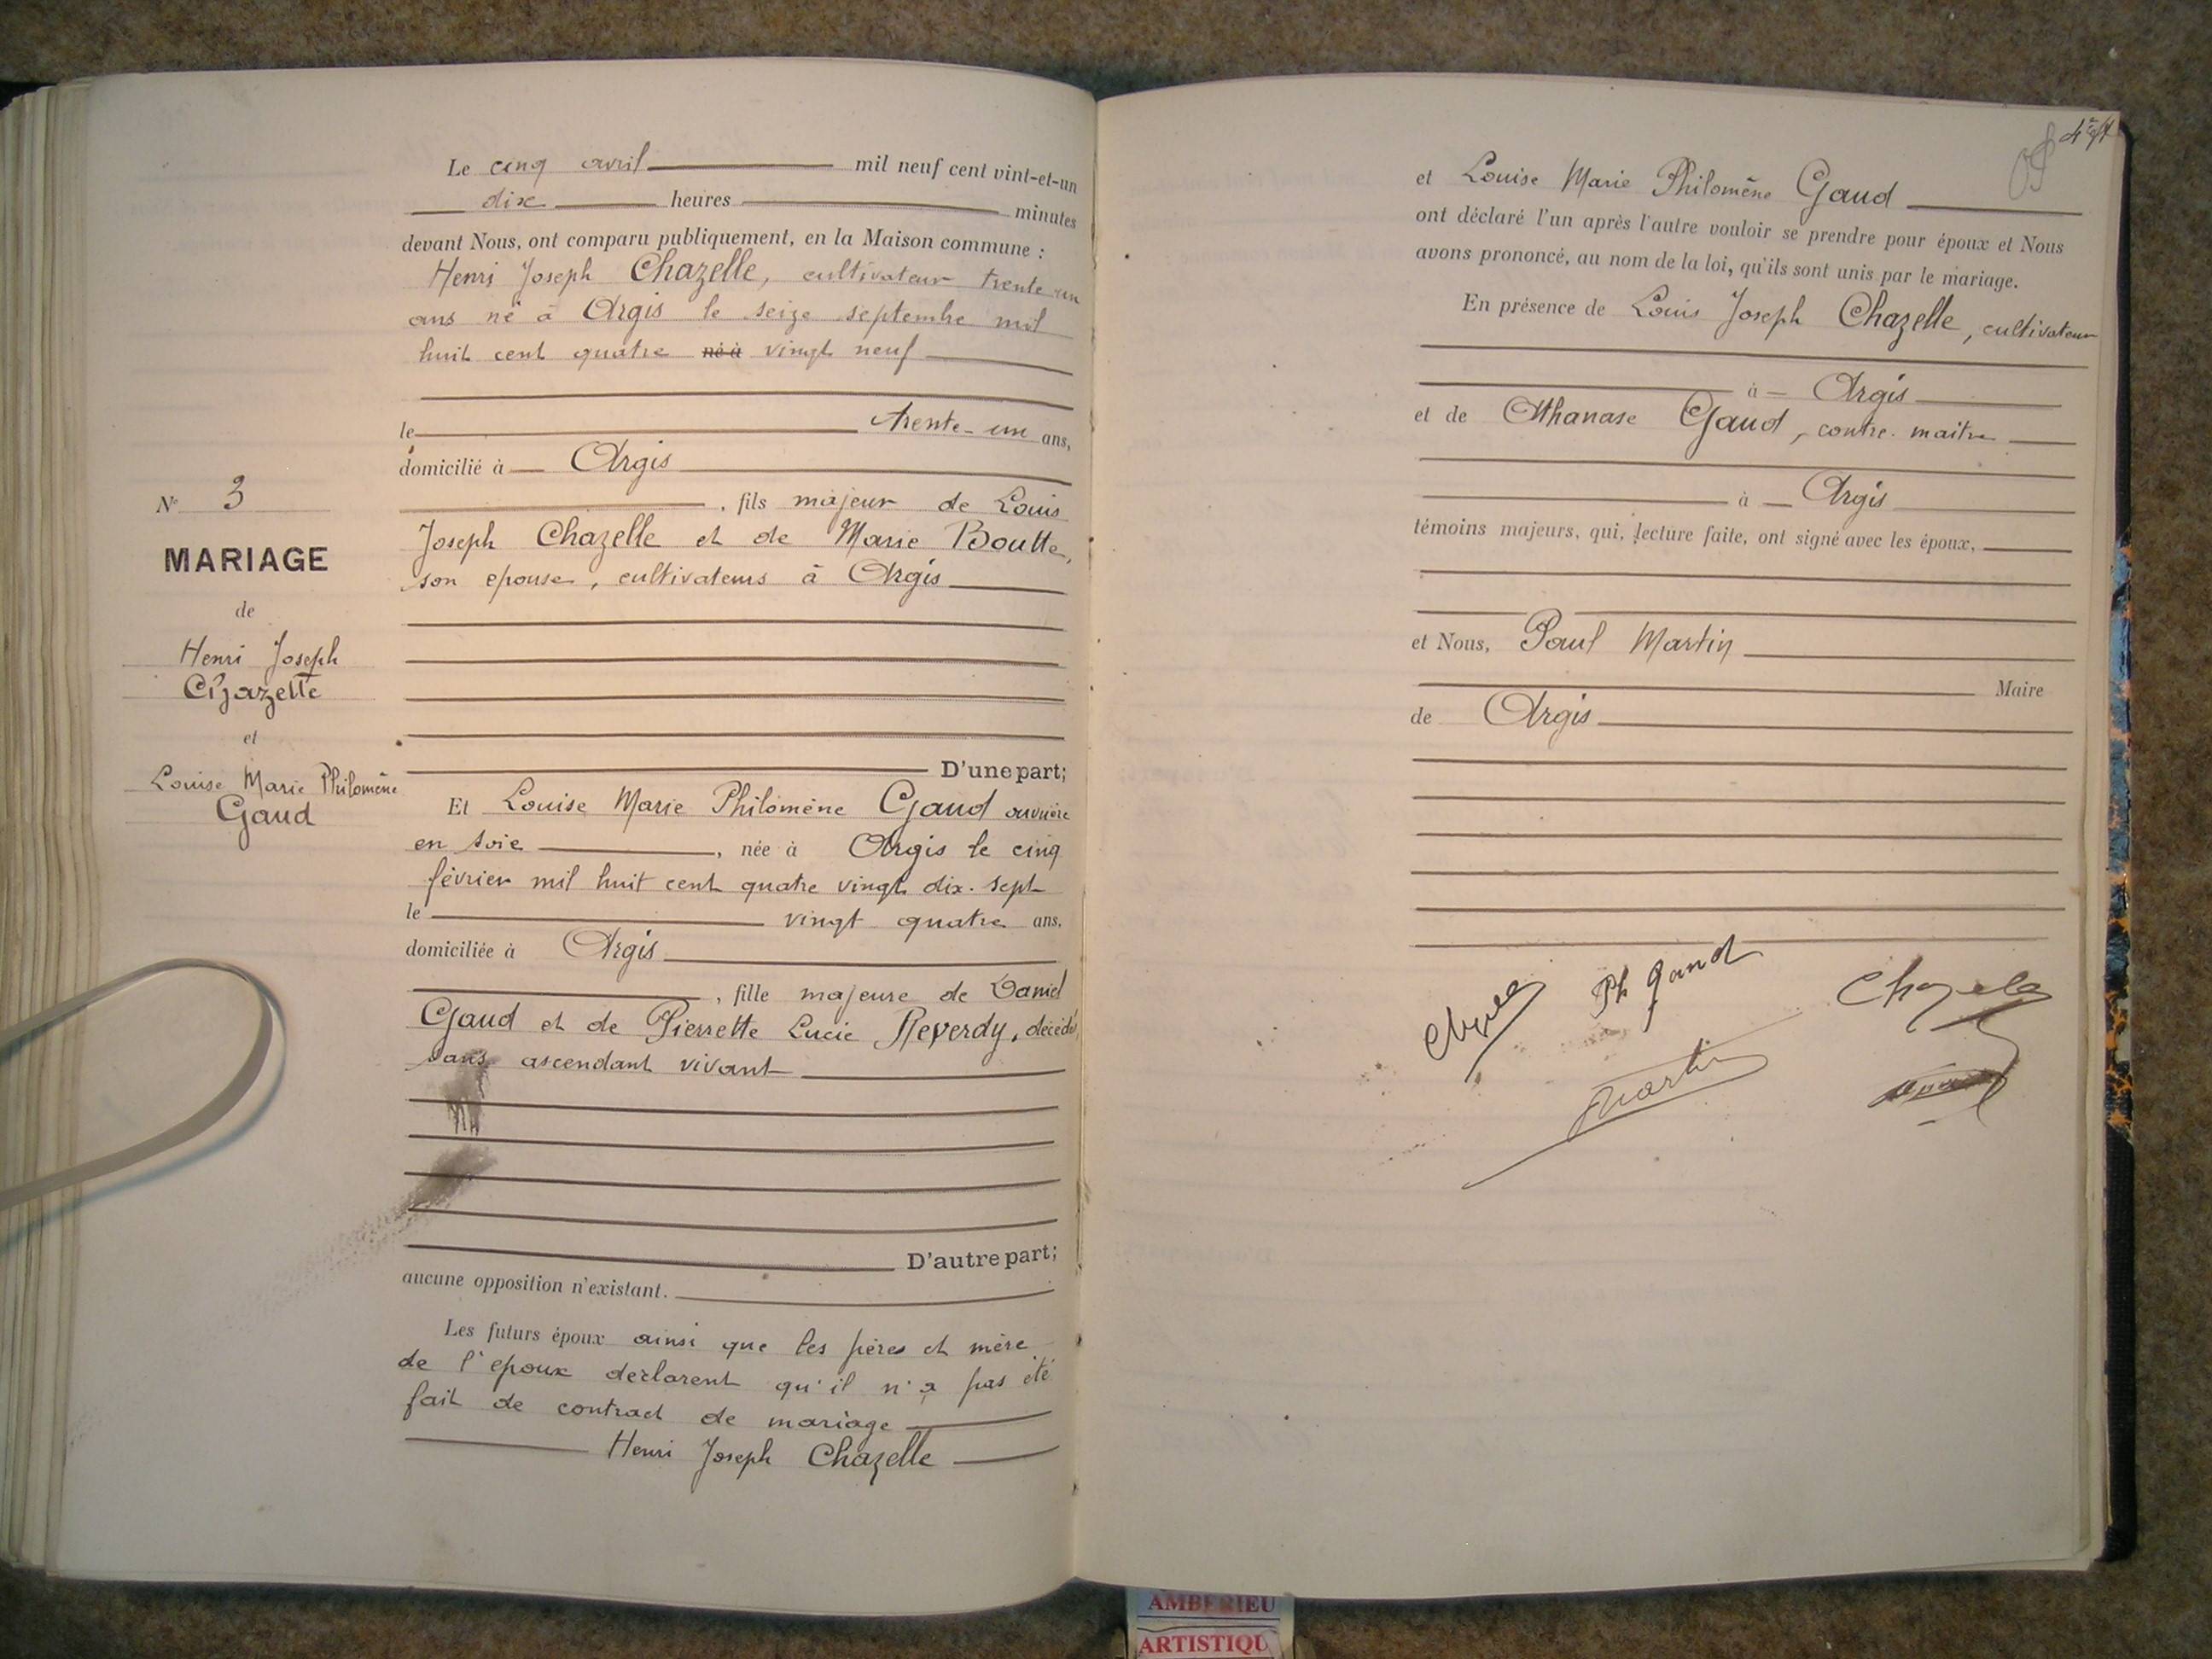 Le cinq avril mil neuf cent vint-et-un
dix heures minutes
devant Nous, ont comparu publiquement, en la Maison commune :
Henri Joseph Chazelle, cultivateur trente un
ans né à Argis le seize septembre mil
huit cent quatre né à vingt neuf
le trente-un ans,
domicilié à Argis
, fils majeur de Louis
Joseph Chazelle et de Marie Boutte,
son epouse, cultivateurs à Argis
D'une part;
N° 3
MARIAGE
de
Henri Joseph
Chazelle
et
Louise Marie Philomène
Gaud
Et Louise Marie Philomène Gaud ouvrière
en soie , née à Argis le cinq
février mil huit cent quatre vingt dix-sept
le vingt quatre ans.
domiciliée à Argis
, fille majeure de Daniel
Gaud et de Pierrette Lucie Reverdy, décédés
sans ascendant vivant
D'autre part;
aucune opposition n'existant.
Les futurs époux ainsi que les pères et mère
de l'epoux declarent qu'il n'a pas été
fait de contract de mariage
Henri Joseph Chazelle
et Louise Marie Philomène Gaud
ont déclaré l'un après l'autre vouloir se prendre pour époux et Nous
avons prononcé, au nom de la loi, qu'ils sont unis par le mariage.
En présence de Louis Joseph Chazelle, cultivateur
à Argis
et de Athanase Gaud, contre-maitre
à Argis
témoins majeurs, qui, lecture faite, ont signé avec les époux,
et Nous, Paul Martin
Maire
de Argis
Ph Gaud
Martin
AMBERIEU
ARTISTIQU